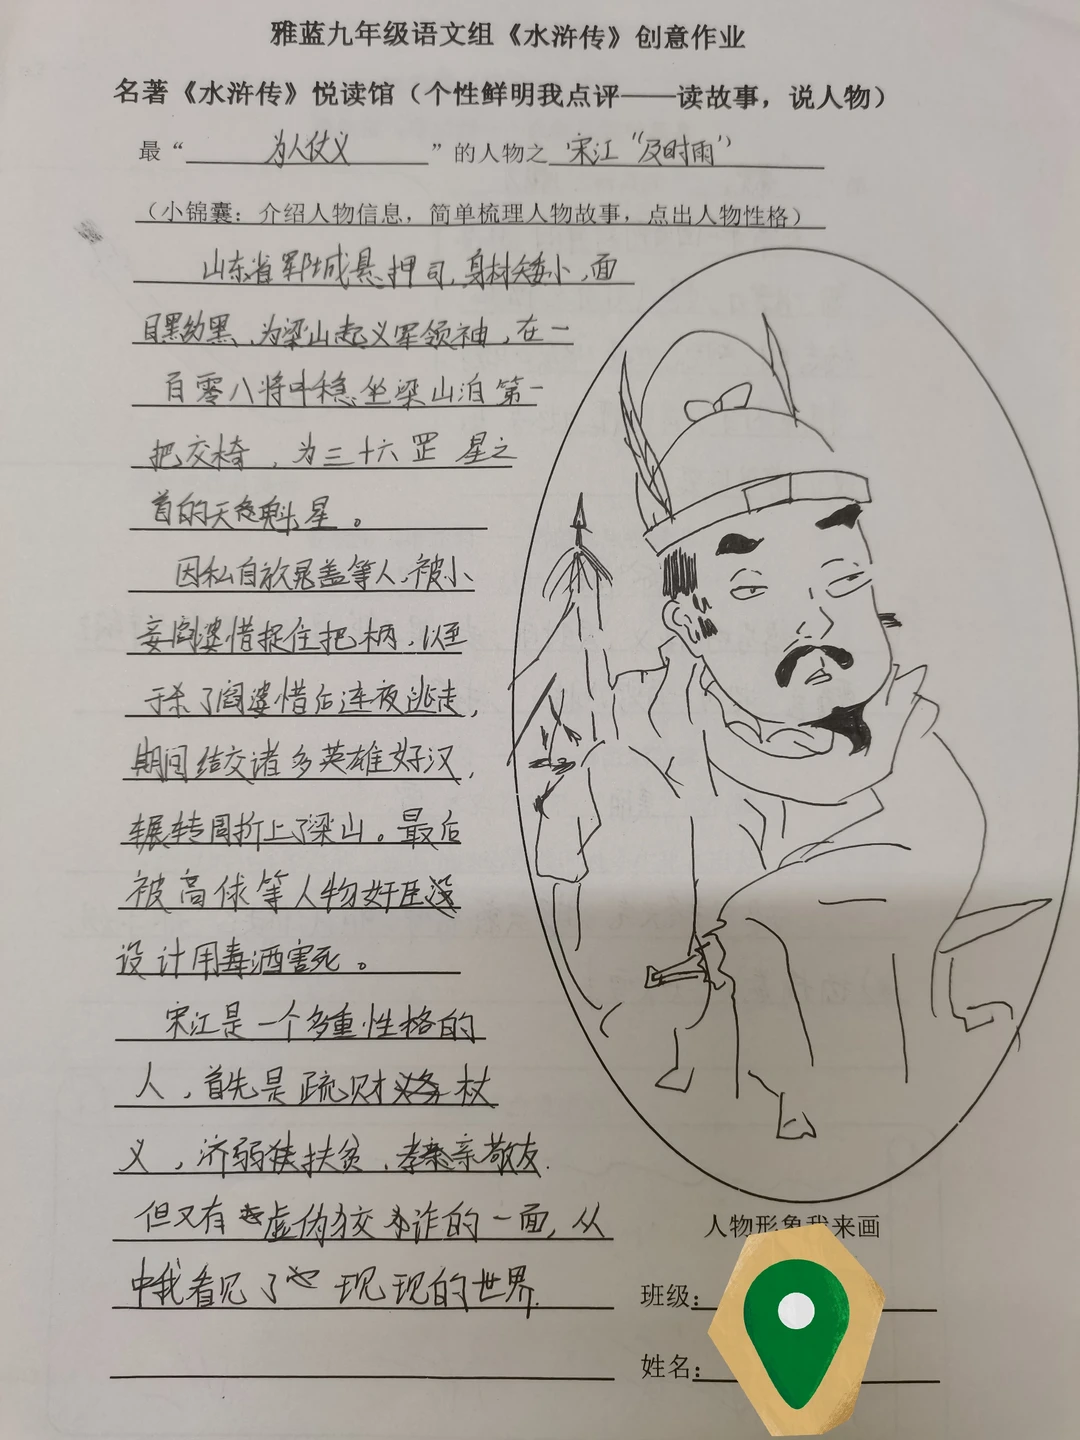 雅蓝九年级语文组《水浒传》创意作业
名著《水浒传》悦读馆（个性鲜明我点评——读故事，说人物）
最“为人仗义”的人物之宋江“及时雨”
（小锦囊：介绍人物信息，简单梳理人物故事，点出人物性格）
山东省郓城悬押司，身材矮小，面
目黑黝黑，为梁山起义军领袖，在一
百零八将中稳坐梁山泊第一
把交椅，为三十六罡星之
首的天魁星。
因私自放晁盖等人，被小
妾阎婆惜捉住把柄，以至
于杀了阎婆惜后连夜逃走，
期间结交诸多英雄好汉，
辗转周折上了梁山。最后
被高俅等人物奸臣
设计用毒酒害死。
宋江是一个多重性格的
人，首先是疏财杖
义，济弱扶贫，孝亲敬友.
但又有虚伪狡诈的一面，从
中我看见了现现的世界.
人物形象我来画
班级：
姓名：